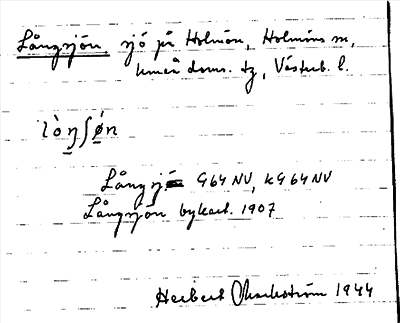 Långsjön, sjö på Holmön, Holmöns sn,
Umeå doms. tg, Västerb. l.
lòŋʃön
Långsjö G64NV, kG64NV
Långsjön bykart. 1907
Herbert Markström 1944